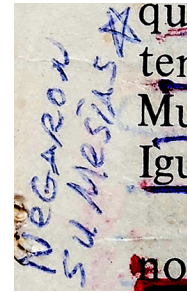 NEGARON
SU MESÍAS ☆
qu
ter
Mu
Igu
no